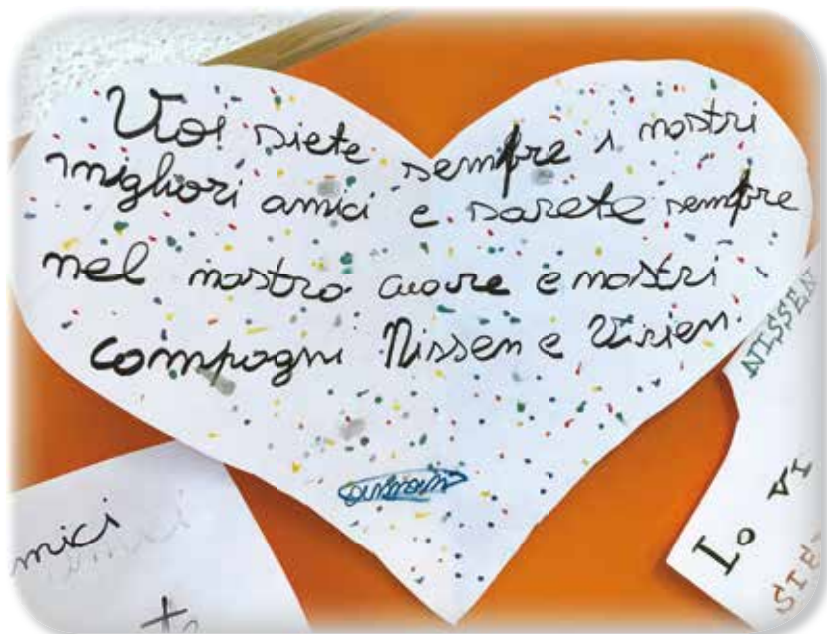 Voi siete sempre i nostri
migliori amici e sarete sempre
nel nostro cuore e nostri
compagni Nissen e
mici
te
NISSEN
Lo vi
SIE